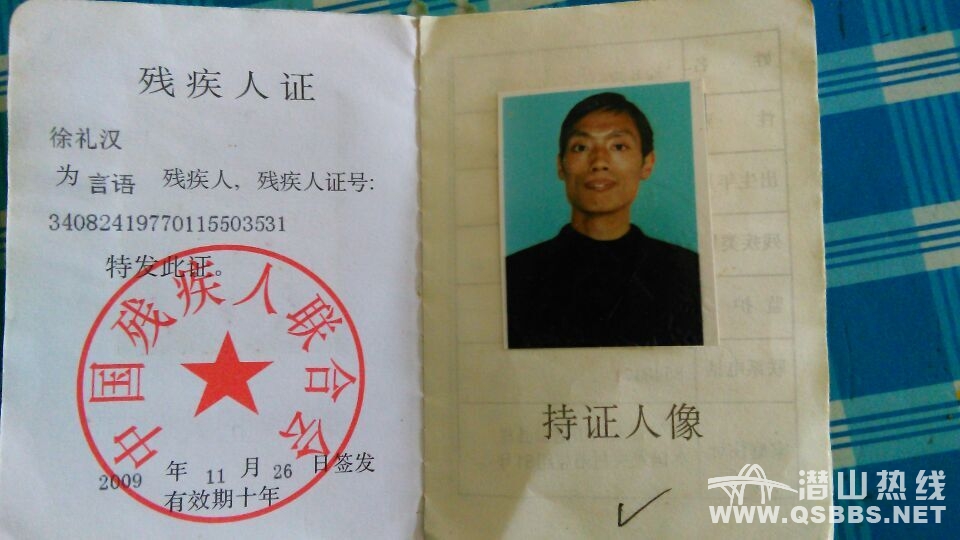 残疾人证
徐礼汉
为 言语 残疾人，残疾人证号：
34082419770115503531
特发此证。
中国残疾人联合会
2009 年 11 月 26 日签发
有效期十年
持证人像
潜山热线
WWW.QSBBS.NET